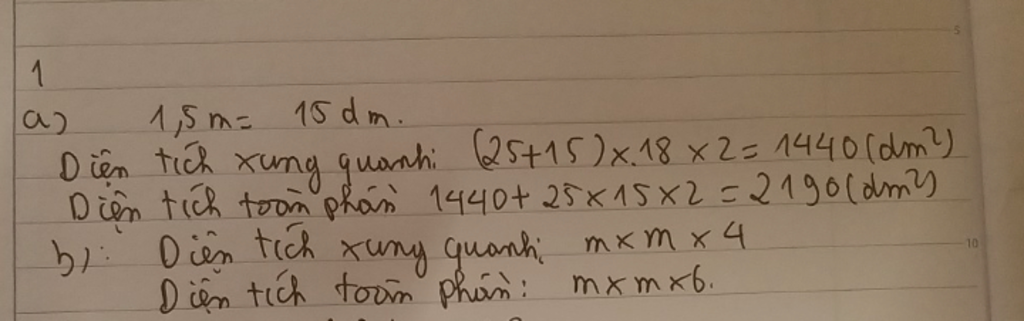 1
a) 1,5m = 15dm.
Diện tích xung quanh: (25+15)×.18×2=1440(dm²)
Diện tích toàn phần 1440+25×15×2=2190(dm²)
b): Diện tích xung quanh: m×m×4
Diện tích toàn phần: m×m×6.